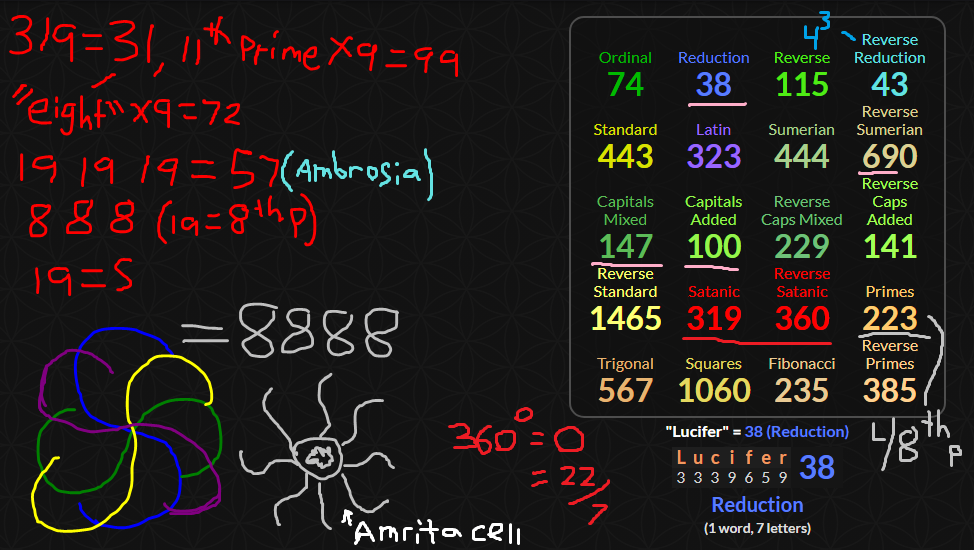 319=31, 11th Prime x9=99
"eight" x9=72
19 19 19 = 57 (Ambrosia)
8 8 8 (19=8th P)
19=S
= 8888
Amrita cell
360°=0
= 22/7
4³
Ordinal Reduction Reverse Reverse Reduction
74 38 115 43
Standard Latin Sumerian Reverse Sumerian
443 323 444 690
Capitals Mixed Capitals Added Reverse Caps Mixed Reverse Caps Added
147 100 229 141
Reverse Standard Satanic Reverse Satanic Primes
1465 319 360 223
Trigonal Squares Fibonacci Reverse Primes
567 1060 235 385
48th P
"Lucifer" = 38 (Reduction)
L u c i f e r 38
3 3 3 9 6 5 9
Reduction
(1 word, 7 letters)